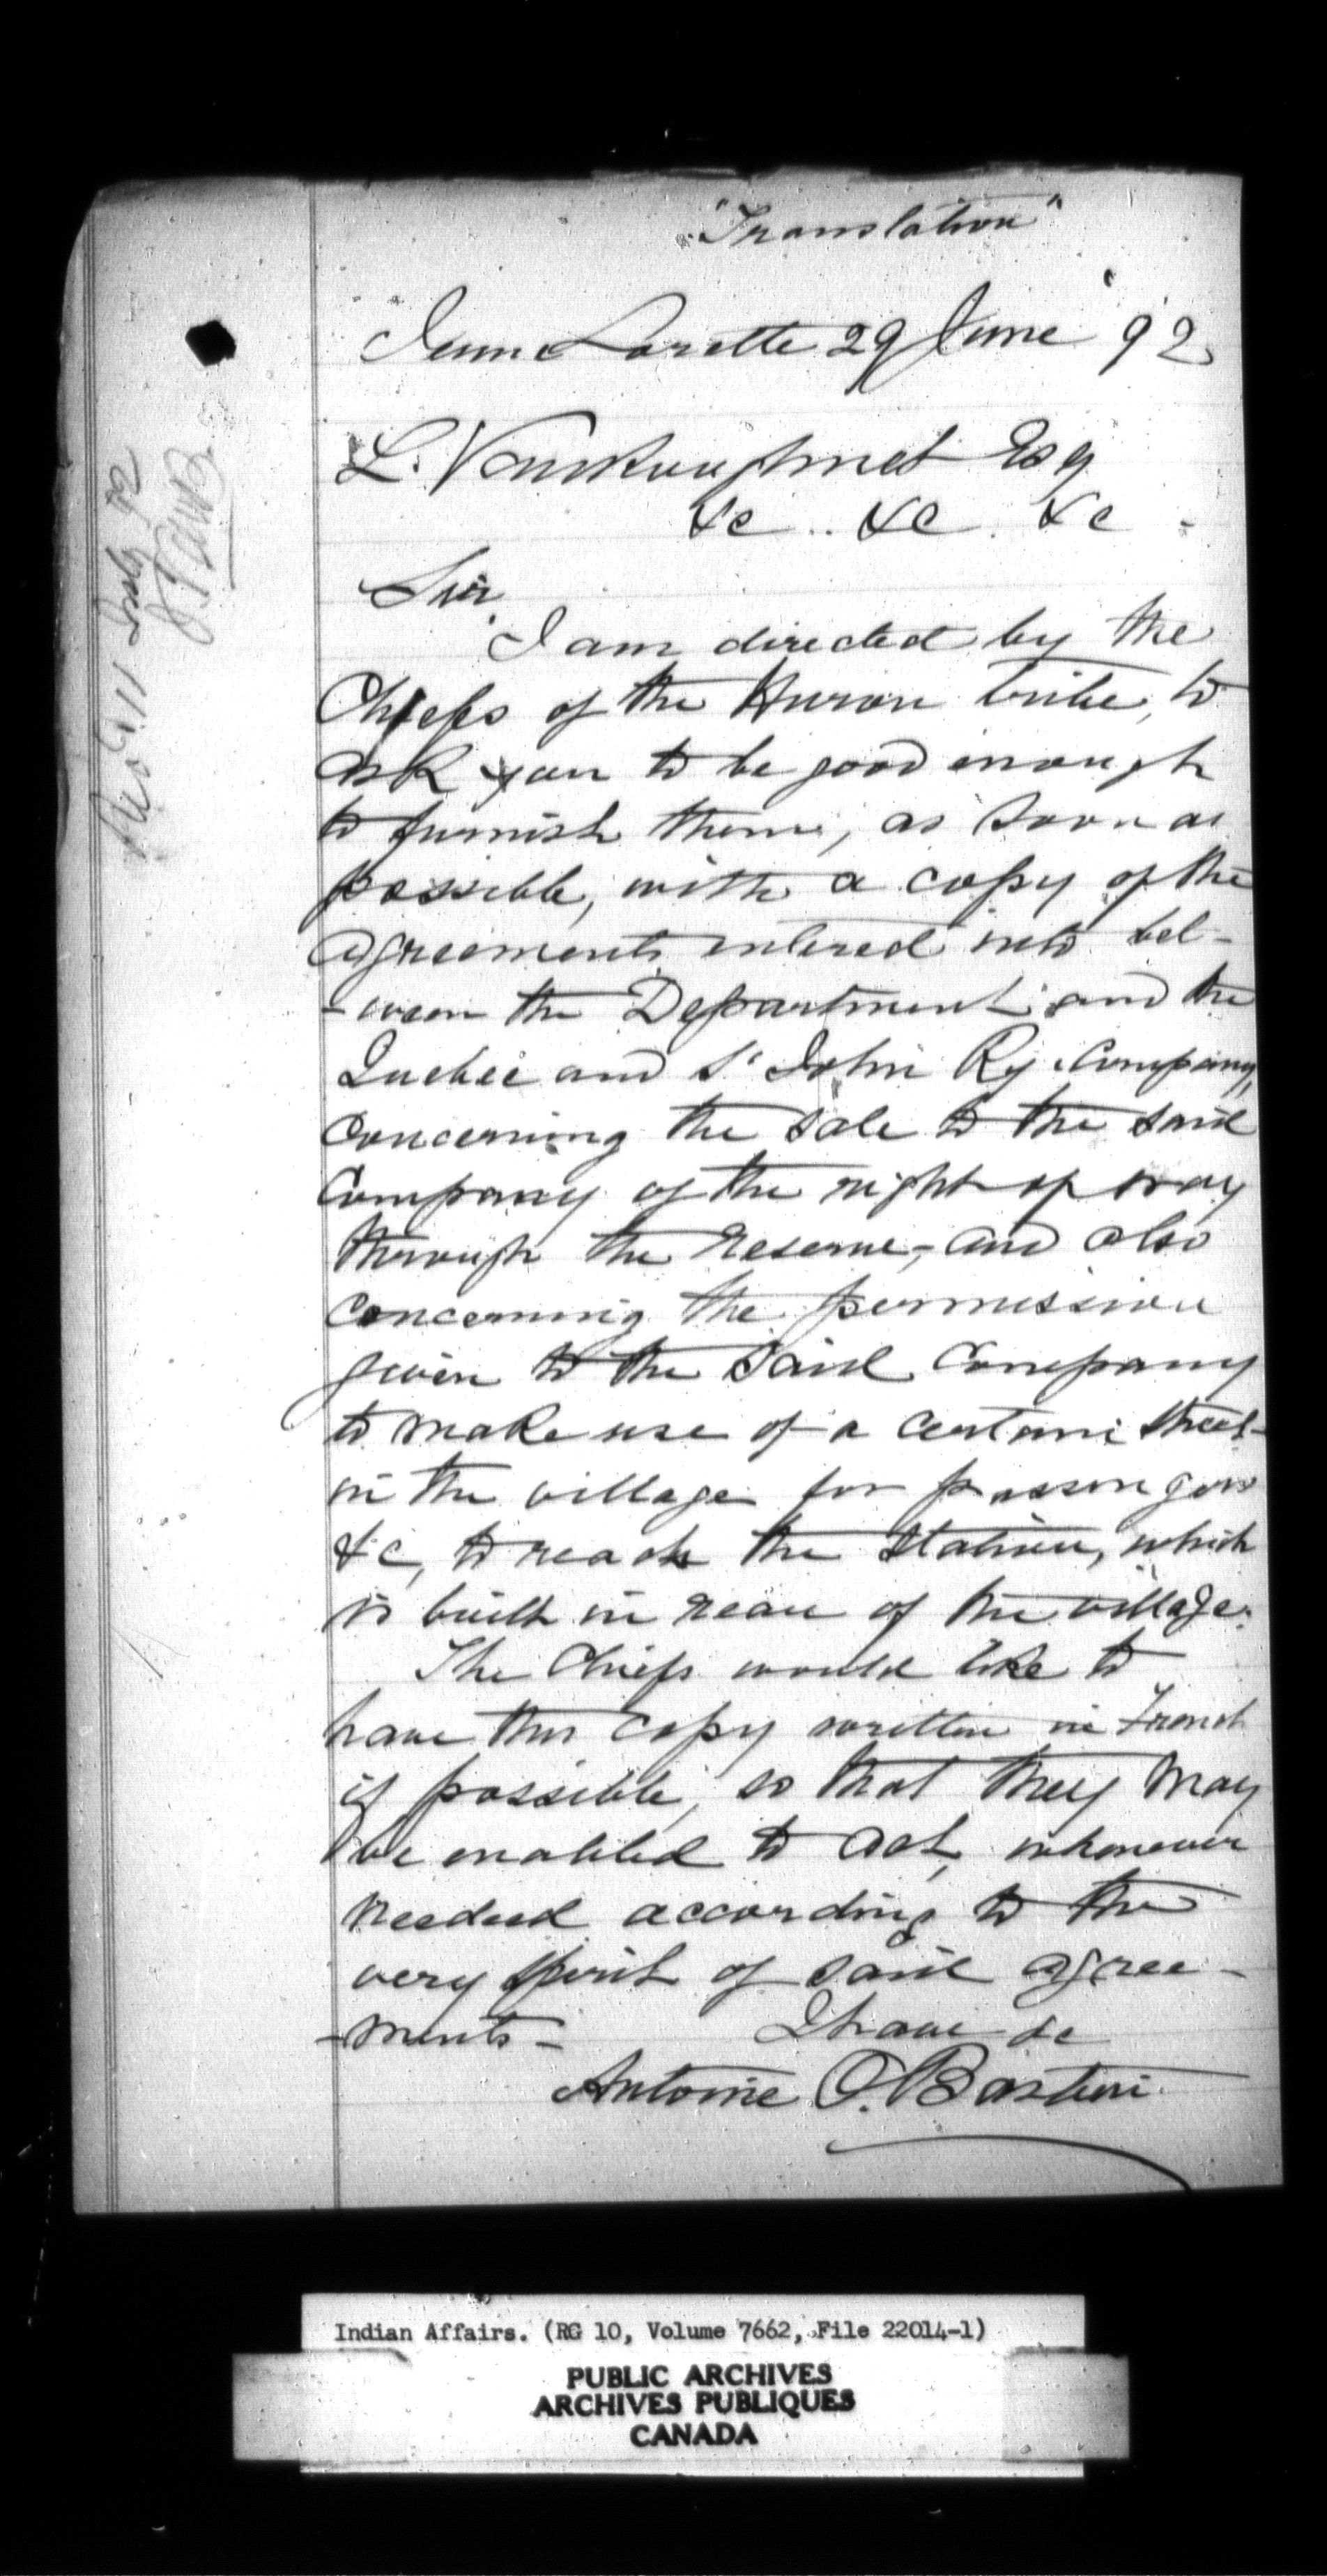 "Translation"
Jeune Lorette 29 June '92
L. Vankoughnet Esq
&c .. &c. &c -
Sir,
I am directed by the
Chiefs of the Huron tribe, to
ask you to be good enough
to furnish them, as soon as
possible, with a copy of the
agreements entered into bet-
-ween the Department and the
Quebec and St John Ry Company,
concerning the sale to the said
Company of the right of way
through the reserve, and also
concerning the permission
given to the said Company
to make use of a certain street
in the village for passengers
&c, to reach the station, which
is built in rear of the village.
The Chiefs would like to
have this copy written in French
if possible, so that they may
be enabled to act, whenever
needed according to the
very spirit of said agree-
-ments -
I have &c
Antoine O. Bastien
11 July 92
Indian Affairs. (RG 10, Volume 7662, File 22014-1)
PUBLIC ARCHIVES
ARCHIVES PUBLIQUES
CANADA